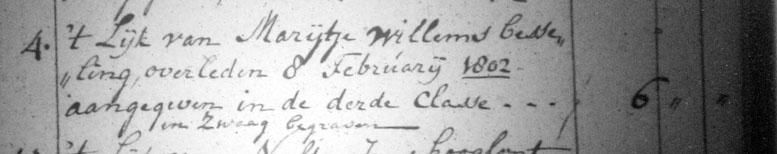 4. 't Lijk van Marijtje Willems besse„
„ling, overleden 8 Februarij 1802.
aangegeven in de derde Classe - - - 6 „ „
in Zwaag begraven
't Lijk van